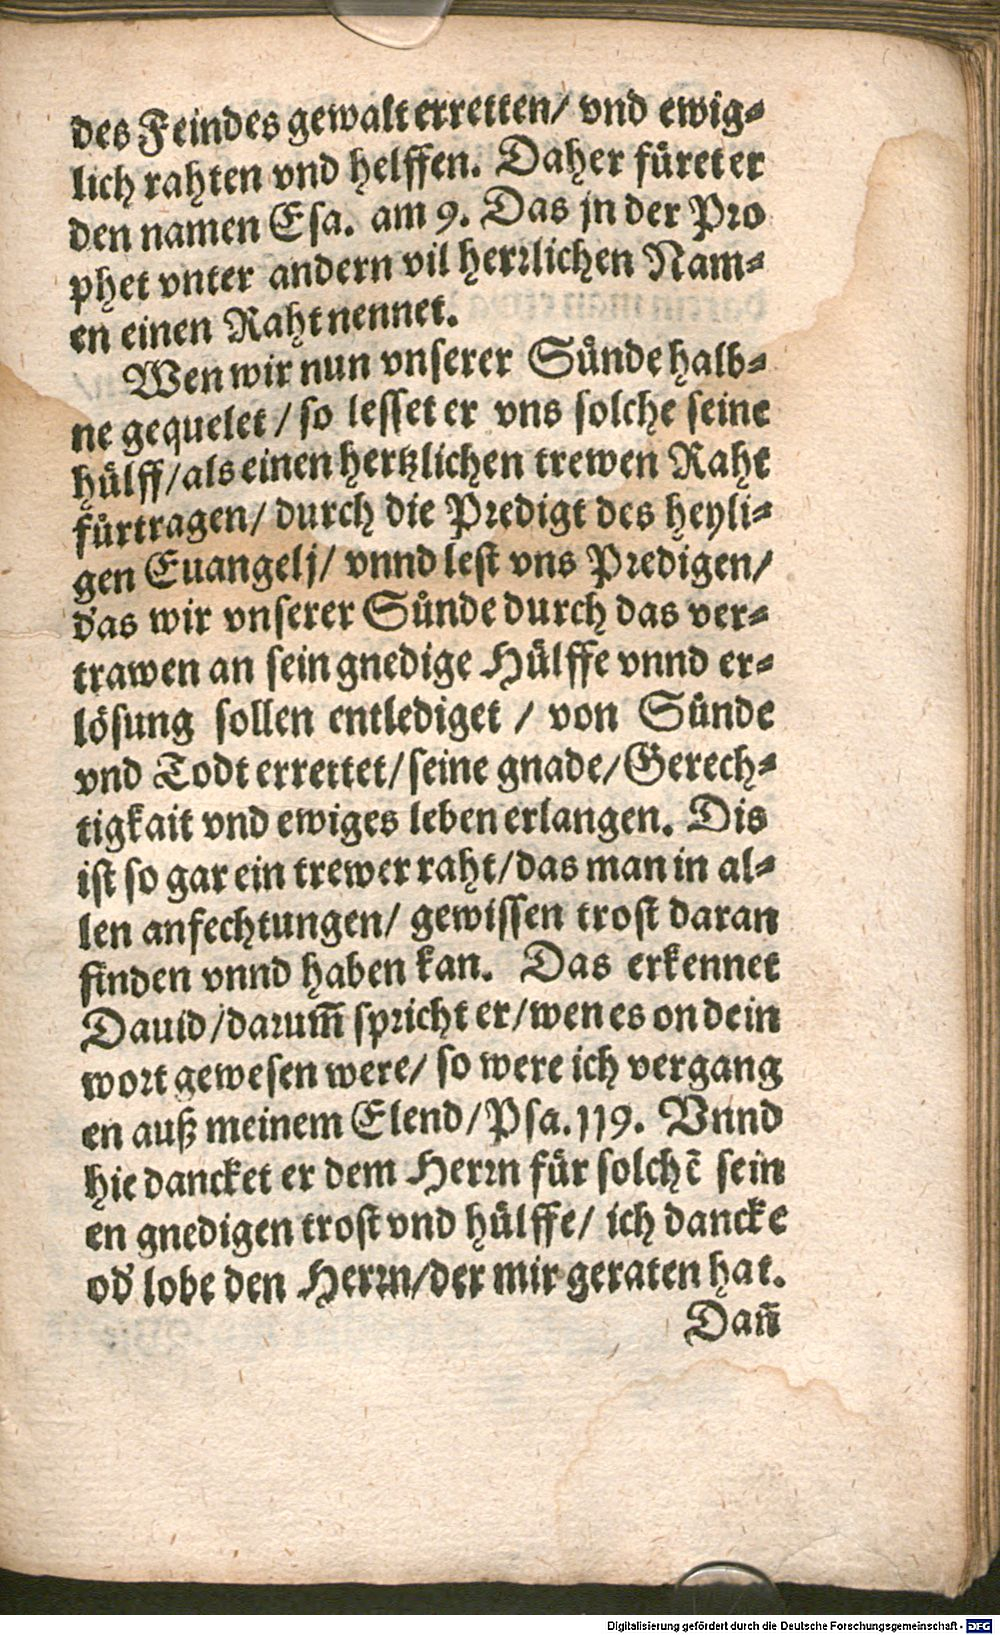 des Feindes gewalt erretten/ vnd ewig⸗
lich rahten vnd helffen. Daher füret er
den namen Esa. am 9. Das jn der Pro
phet vnter andern vil herrlichen Nam⸗
en einen Raht nennet.
Wen wir nun vnserer Sünde halb⸗
ne gequelet / so lesset er vns solche seine
hülff/ als einen hertzlichen trewen Raht
fürtragen/ durch die Predigt des heyli⸗
gen Euangelj/ vnnd lest vns Predigen/
das wir vnserer Sünde durch das ver⸗
trawen an sein gnedige Hülffe vnnd er⸗
lösung sollen entlediget / von Sünde
vnd Todt errettet/ seine gnade/ Gerech⸗
tigkait vnd ewiges leben erlangen. Dis
ist so gar ein trewer raht/ das man in al⸗
len anfechtungen/ gewissen trost daran
finden vnnd haben kan. Das erkennet
Dauid/ darum̄ spricht er/ wen es on dein
wort gewesen were/ so were ich vergang
en auß meinem Elend/ Psa. 119. Vnnd
hie dancket er dem Herrn für solchē sein
en gnedigen trost vnd hülffe/ ich dancke
od' lobe den Herrn/ der mir geraten hat.
Dan̄
Digitalisierung gefördert durch die Deutsche Forschungsgemeinschaft - DFG